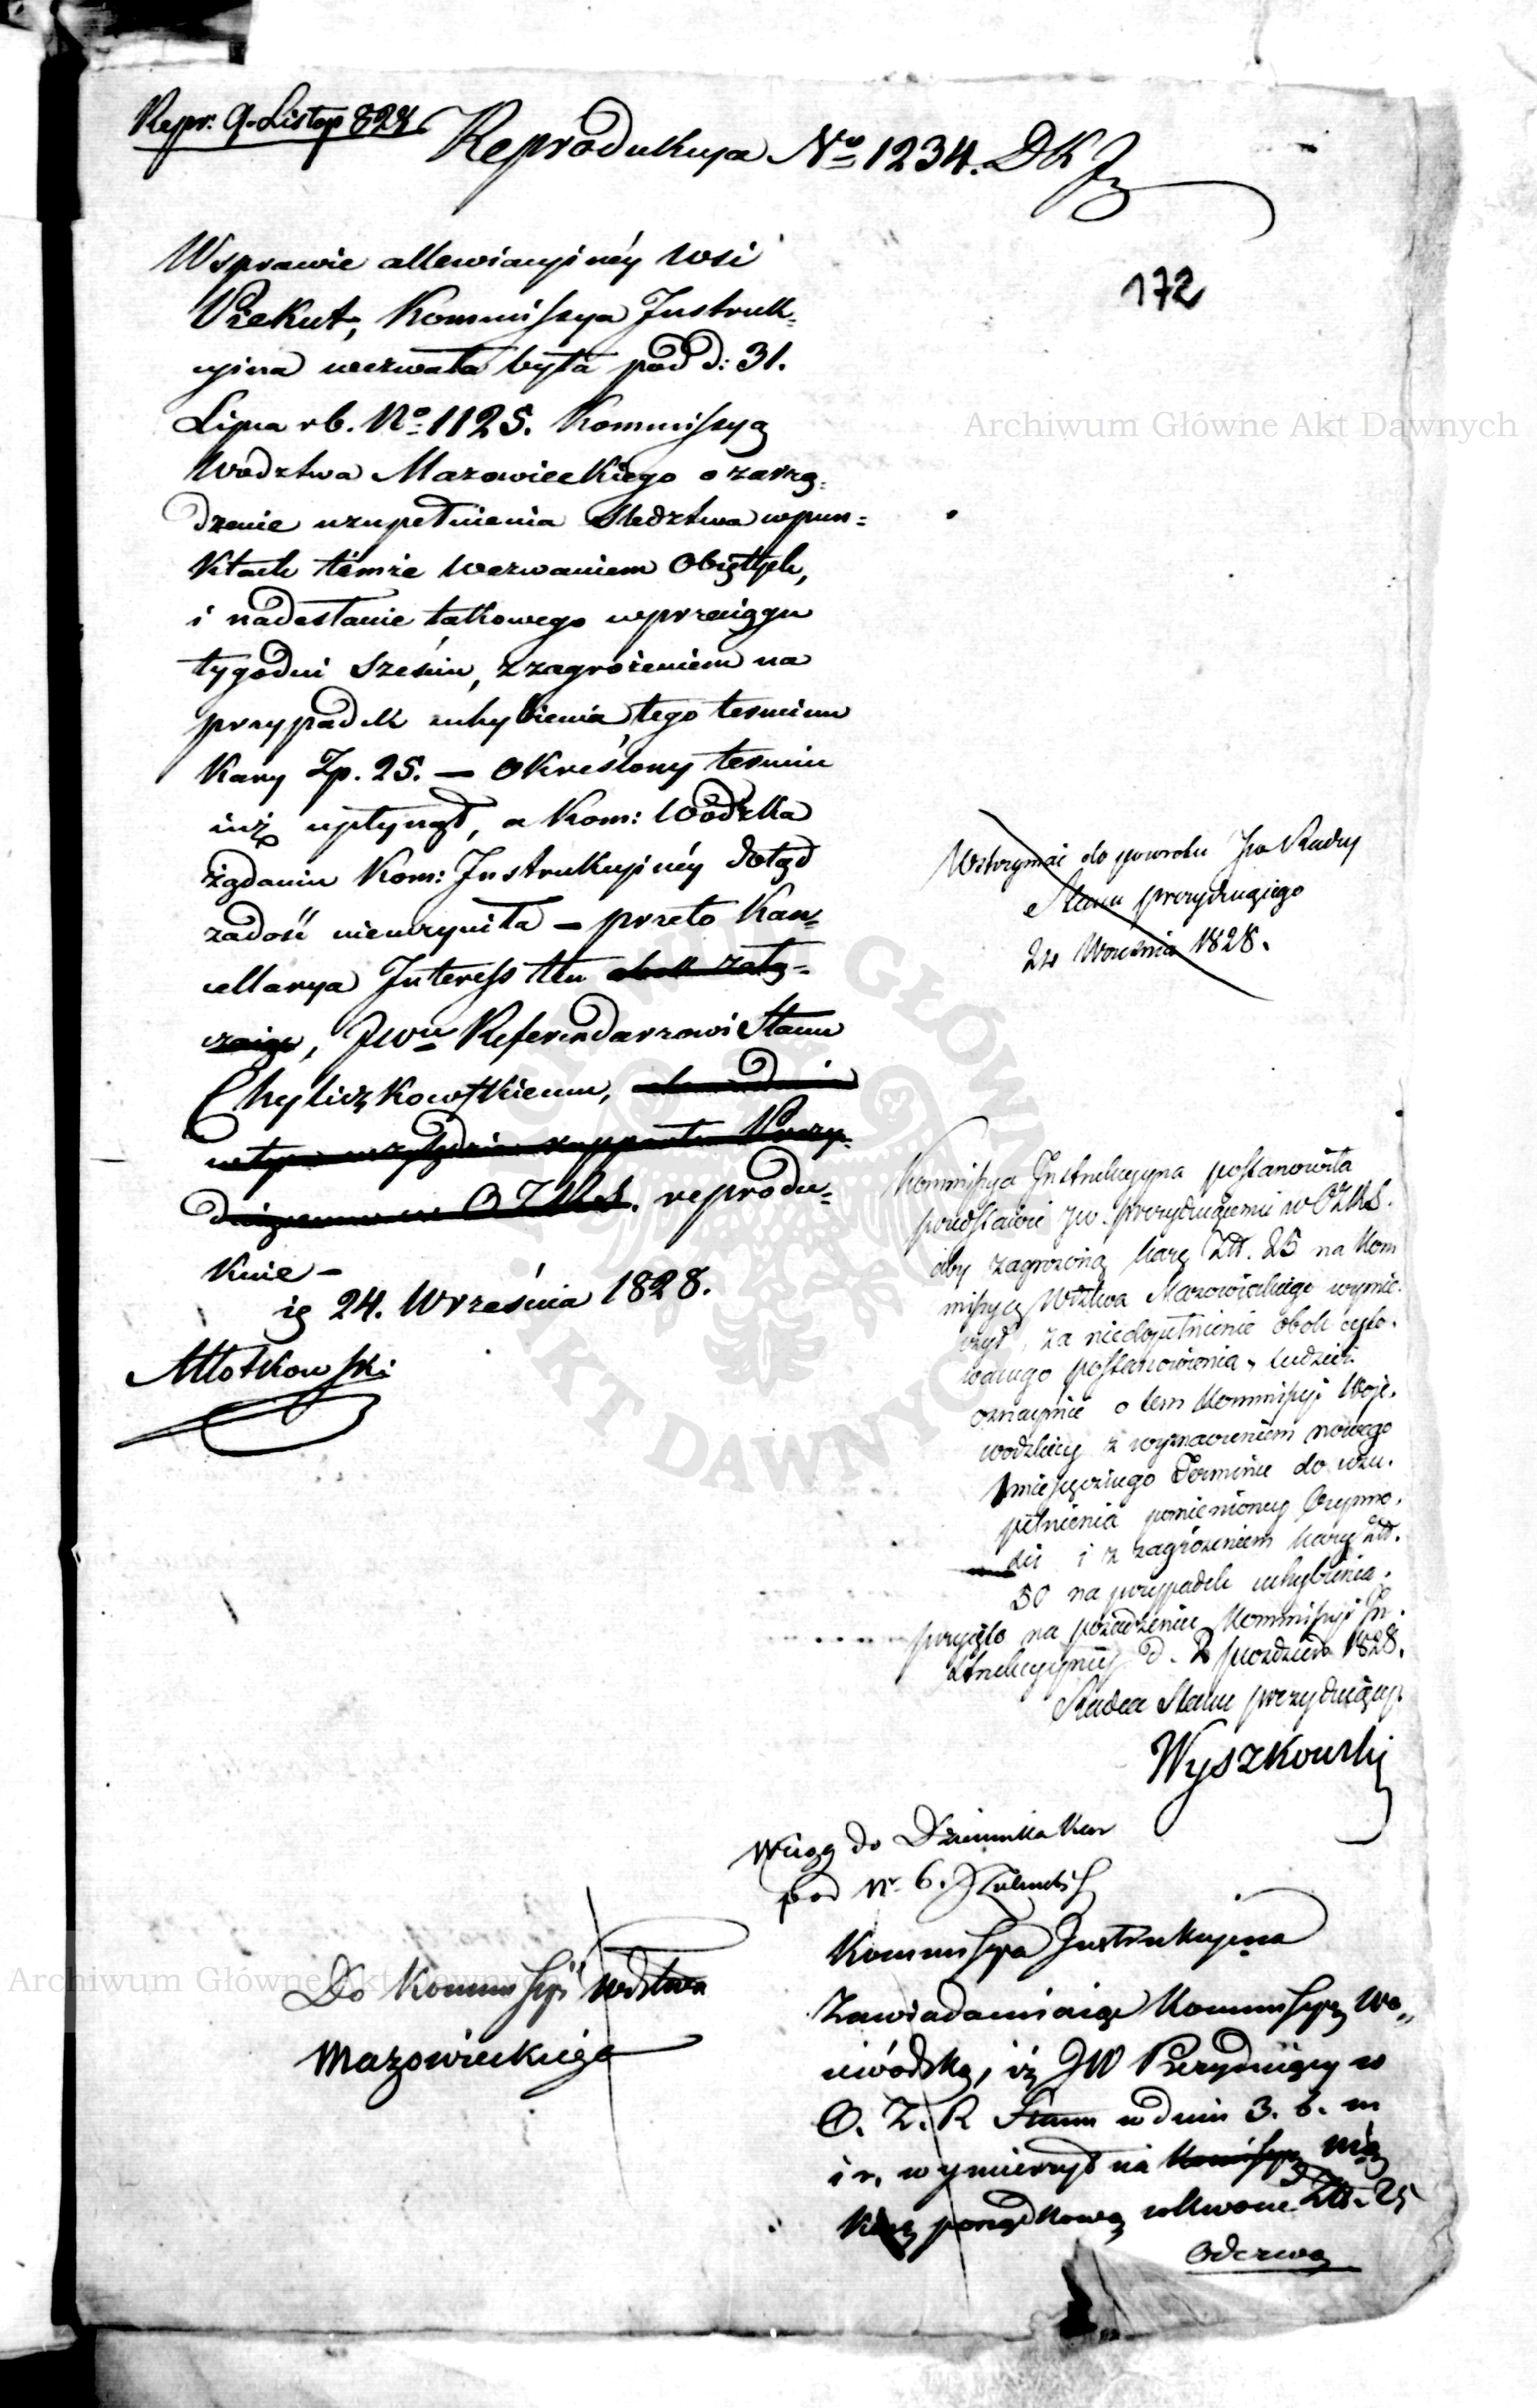 Repr. 9. Listop 828
Reprodukcya No 1234. DK
172
W sprawie allewiacyinéy wsi
Piekut, Kommissya Instruk=
cyina wezwała była pod d: 31.
Lipca rb. No 1125. Kommissyą
Wodztwa Mazowieckiego o zarzą=
dzenie uzupełnienia śledztwa w pun=
ktach témże wezwaniem obiętych,
i nadesłanie takowego w przeciągu
tygodni sześciu, z zagrożeniem na
przypadek uchybienia tego terminu
kary Zp. 25. — Określony termin
iuż upłynął, a Kom: Wódzka
żądaniu Kom: Instrukcyinéy dotąd
zadość nieuczyniła — przeto Kan=
cellarya Interess ten obok załą=
czaiąc, JWu Referendarzowi Stanu
Chyliczkowskiemu,
w tym względzie rapportu Prezy=
duiącemu w OZRS. reprodu=
kuie —
ią 24. Września 1828.
Młotkowski
Wstrzymać do powrotu Jw Radcy
Stanu prezyduiącego
24 Września 1828.
Kommissya Instrukcyyna postanowiła
przedstawić JW. Prezyduiącemu w OZRS.
aby zagrożoną karę Złł. 25 na Kom
missyą Wdztwa Mazowieckiego wymie-
rzył, za niedopełnienie obok cyto-
wanego postanowienia, tudzież
oznaymić o tem Kommissyi Woje-
wodzkiey z wyznaczeniem nowego
1miesięcznego Terminu do uzu-
pełnienia pomienioney Czynno-
ści i z zagrożeniem kary Złł.
50 na przypadek uchybienia.
przyięto na posiedzeniu Kommissyi In-
strukcyyney d. 2 październ 1828.
Radca Stanu prezyduiący
Wyszkowski
Wciągn do Dziennika Kar
pod Nr 6.
Kommissya Instrukcyina
Do Kommissyi Wdztwa
Mazowieckiego
Zawiadamiaiąc Kommissyą Wo=
iewódzką, iż JW Prezyduiący w
O. Z. R Stanu w dniu 3. b. m
i r. wymierzył na Komissyę nią
karę porządkową w kwocie Złł. 25
Odezwą